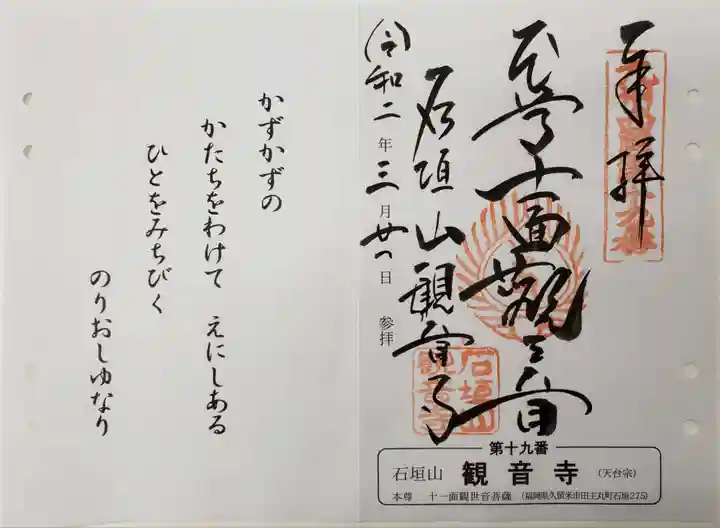 奉拝
本尊十一面観世音
石垣山観音寺
(令)和二年三月廿一日 参拝
石垣山
観音寺
第十九番
石垣山 観音寺 (天台宗)
本尊 十一面観世音菩薩 (福岡県久留米市田主丸町石垣275)
かずかずの
かたちをわけて えにしある
ひとをみちびく
のりおしゆなり